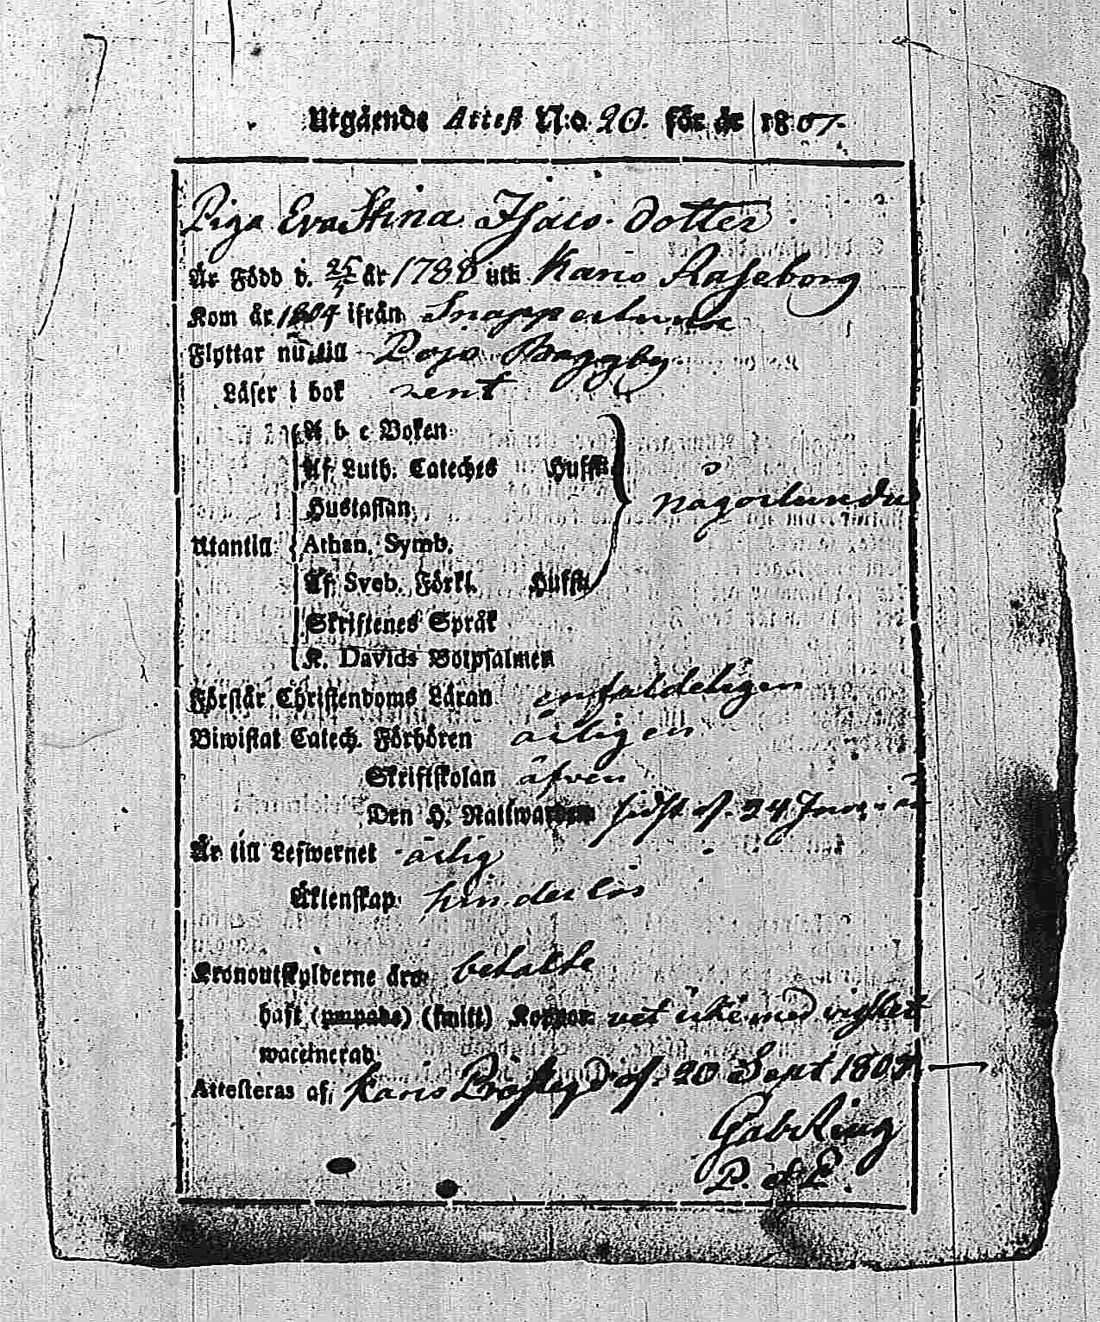 Utgående Attest N:o 20. för år 1807.
Piga Eva Stina Isacs dotter.
Är Född d. 25/7 år 1788 uti Karis Raseborg
Kom år 1804 ifrån Snappertuna
Flyttar nu till Pojo Baggby
Läser i bok rent
A b c Boken
Af Luth. Cateches Hufst.
Hustaflan
någorlunda
Utantill Athan. Symb.
Af Sveb. Förkl. Hufst.
Skriftenes Språk
K. Davids Botpsalmer
Förstår Christendoms Läran enfaldeligen
Biwistat Catech. Förhören årligen
Skriftskolan äfven
Den H. Nattwarden sidst d. 24
Är till Lefwernet ärlig
Äktenskap hinderlös
Kronoutskylderne äro betalte
haft (ympade) (smitt) Koppor vet icke med visshet
waccinerad
Attesteras af, Karis Prästegd d. 20 Sept 1807.
Gab. Ring